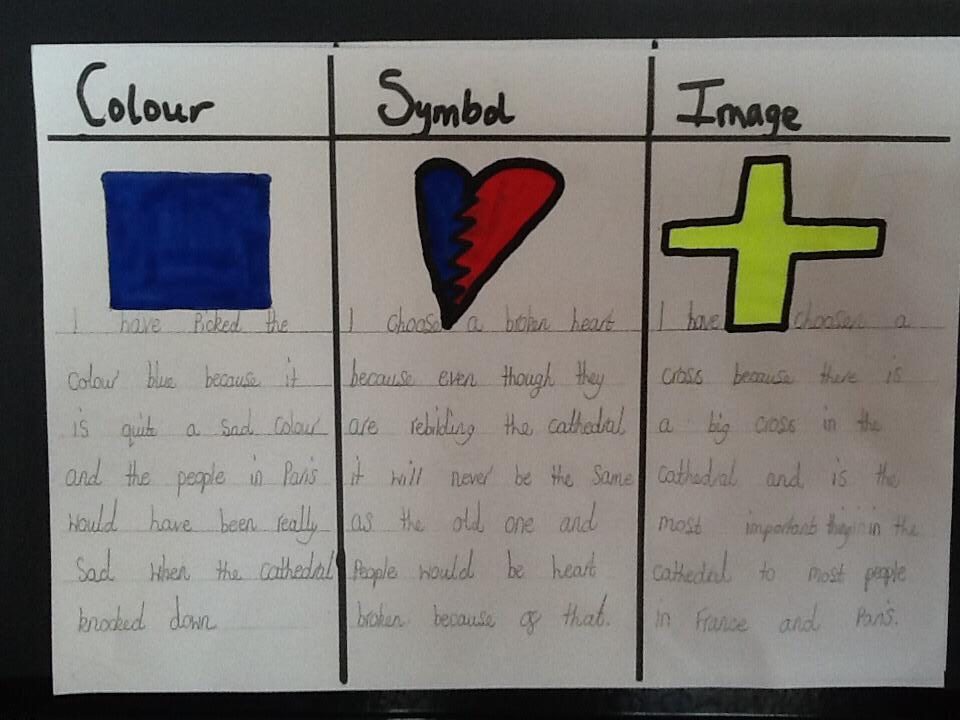 Colour
I have Picked the
colour blue because it
is quite a sad colour
and the people in Paris
would have been really
Sad when the cathedral
knocked down
Symbol
I choose a broken heart
because even though they
are rebilding the cathedral
it will never be the same
as the old one and
People would be heart
broken because of that.
Image
I have choosen a
cross because there is
a big cross in the
cathedral and is the
most important thing in the
cathedral to most people
in France and Paris.